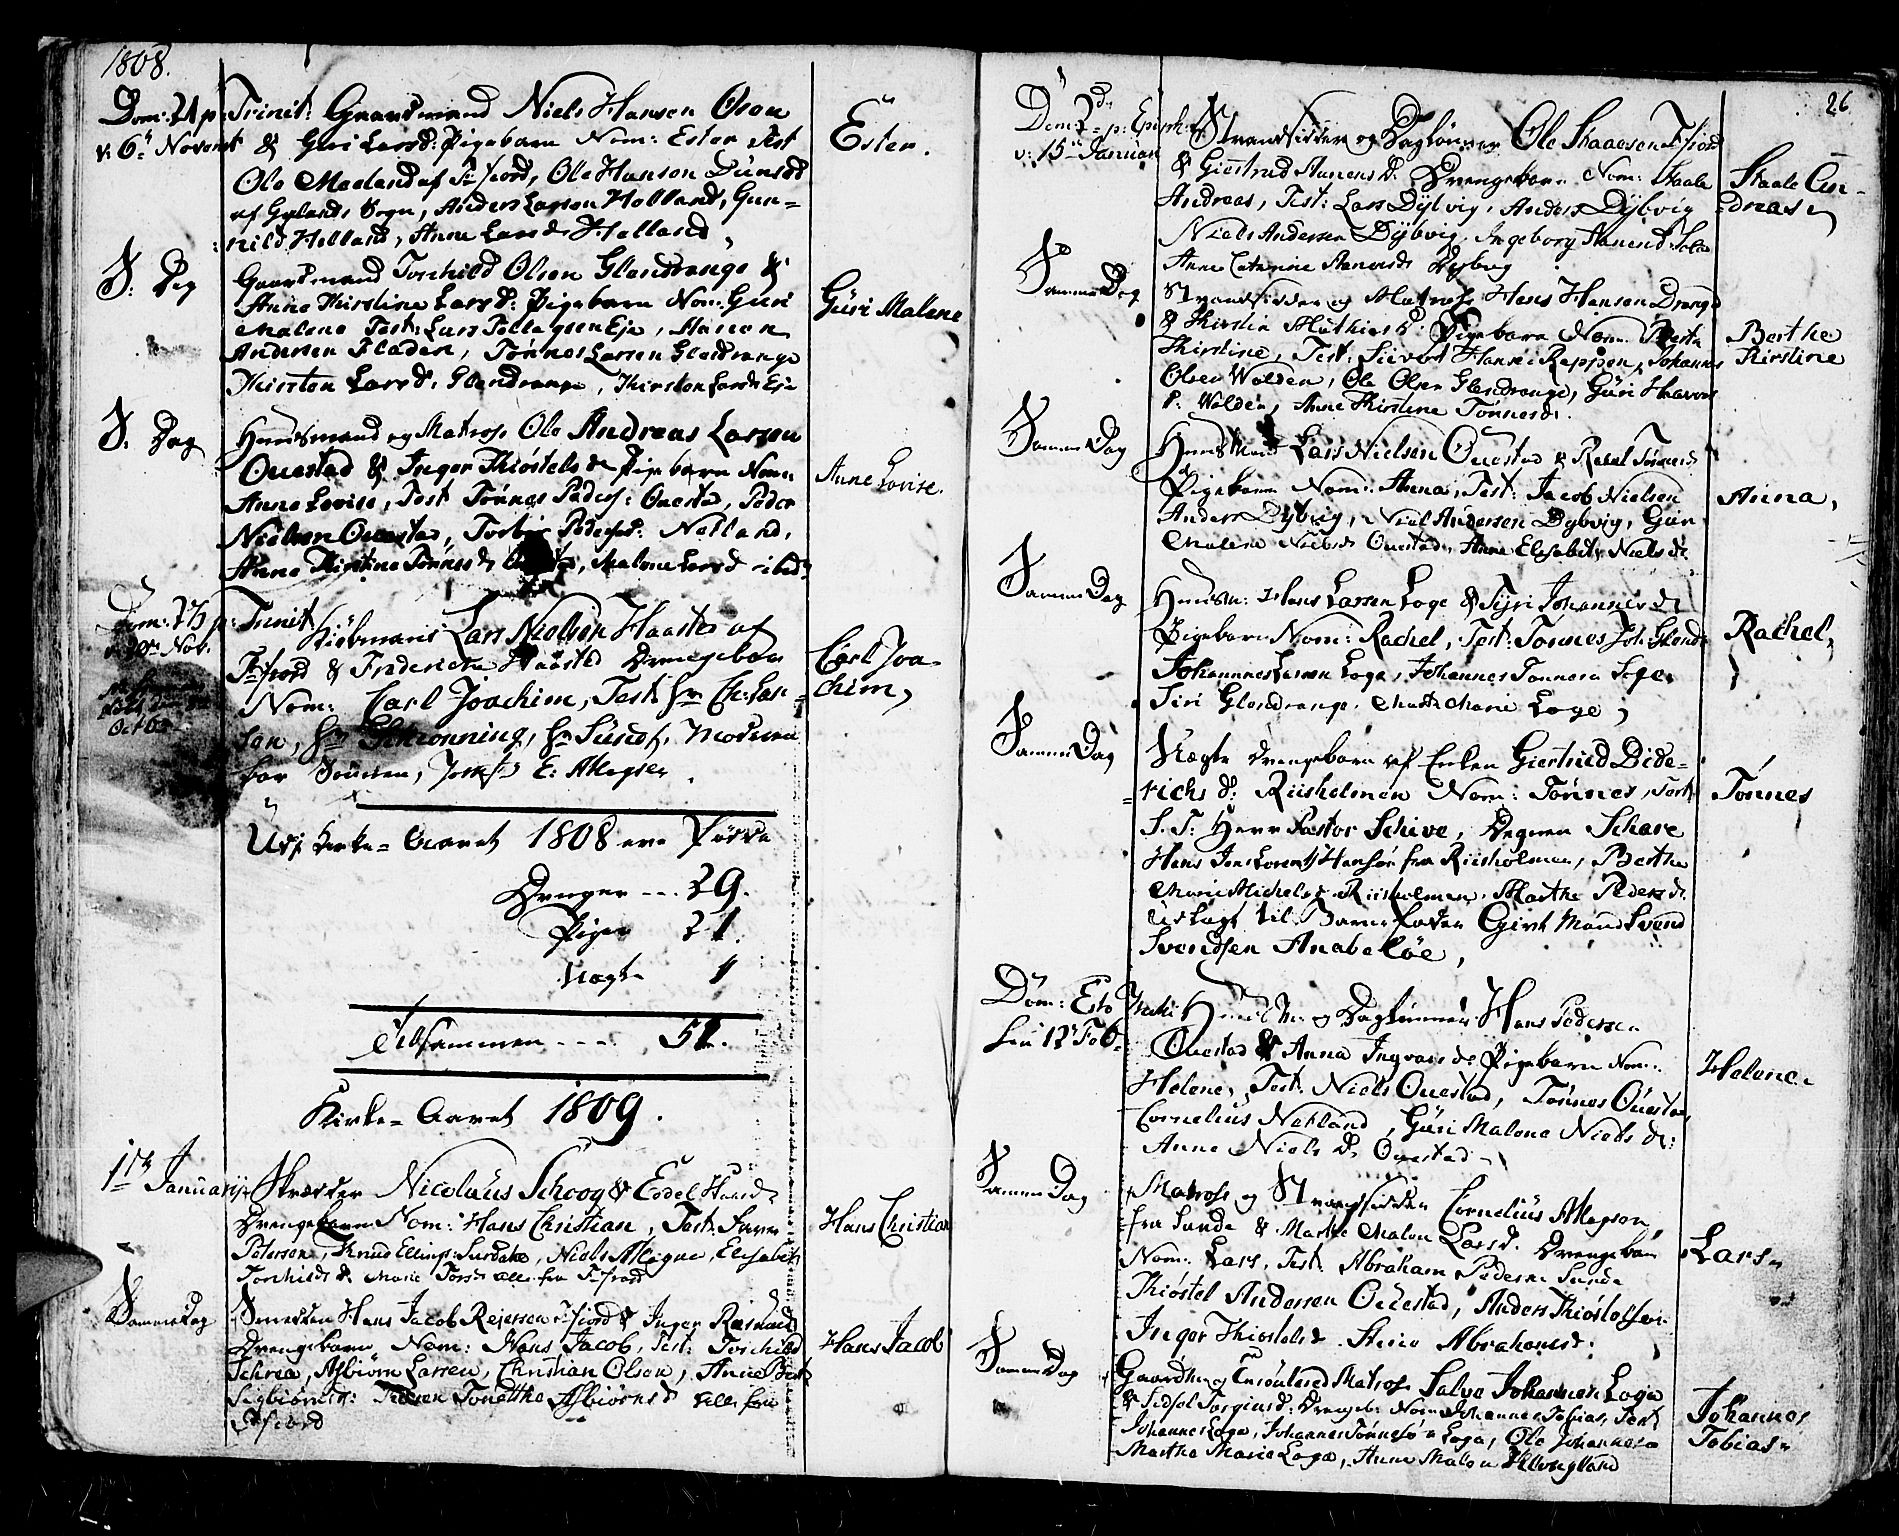 1808.
Dom: 21 p: Trinit: Gaardmand Niels Hansen Olson
d: 6te Novembr & Guri Larsd: Pigebarn Nom: Ester Test
Ole Meeland af Fl:fiord, Ole Hanson
af Gylands Sogn, Anders Larsen Holland, Gun=
nild Holland, Anne Larsd Holland
Ester.
S: Dag
Gaardmand Torchild Olsen Glendrange &
Anne Kirstine Larsd: Pigebarn Nom: Guri
Malene Test: Lars Pellegsen Eje, Hanen
Andersen Fladen, Tønnes Larsen Glendrange
Kirsten Larsd: Glendrange, Kirsten Larsd: Eje
Güri Malene
S. Dag
Huusmand og Matros Ole Andreas Larsen
Ouestad & Inger Kiøstelsd Pigebarn Nom:
Anne Lovise, Test Tønnes Peders: Ouestad, Peder
Nielsen Ouestad, Torbiør Pedersd: Netland,
Anne Kirstine Tønnesd, Malene Larsd ibid:
Anne Lovise.
Dom: 23 p: Trinit
d: 20de Nov.
Kiøbmand Lars Nielsen Haasted af
Fl:fiord & Fredericka Haasted Drengebarn
Nom: Carl Joachim, Test: Hr Ch: Lar=
sen, Hr Schrönning, Hr Lund, Moderen
bar Sønnen, Jomf: E: Allegsen
Carl Joa=
chim,
Udj Kirke=Aaret 1808 ere Fødde
Drenger --- 29.
Piger 21.
Uægte 1
Tilsammen ---- 51.
Kirke=Aaret 1809.
1te Januarij
Skrædder Nicolaüs Schoog & Eedel Haard
Drengebarn Nom: Hans Christian, Test: Søren
Petersen, Knud Ellings: Surdahl, Niels Allegne, Elisabeth
Torchildsd: Marie Torsd alle fra Fl:fiord
Hans Christian
Samme Dag
Smeden Hans Jacob Rejersen Fl:fiord & Inger Rasmusd
Drengebarn Nom: Hans Jacob, Test: Torchild
Schree, Asbiørn Larsen, Christian Olson, Anne Berth
Sigbiørnsd: Tonette Asbiørnsd alle fra
Fl:fiord
Hans Jacob
26.
Dom: 2de p: Epiph:
d: 15de Januari
Strandsidder og Dagløner Ole Staaesen Fl:fiord
& Giertrud Hanensd Drengebarn Nom: Staale
Andreas, Test: Lars Dybvig, Anders Dybvig
Niels Andersen Dybvig, Ingeborg Hanensd
Anne Catrine Hanensd Dybvig
Staale An=
dreas
Samme Dag
Strandsidder og Matros Hans Hansen Drange
& Kirstin Mathiesd: Pigebarn Nom: Berta
Kirstine, Test: Sievert Hansen Reppen, Johannes
Olsen Wolden, Ole Olsen Glendrange, Güri Haavors
d: Wolden, Anne Kirstine Tønnesd.
Berthe
Kirstine
Samme Dag
Huusmand Lars Nielsen Ouestad & Rakel Tønnesd
Pigebarn Nom: Anna, Test: Jacob Nielsen
Anders Dybvig, Niels Andersen Dybvig, Guri
Malene Nielsd Ouestad, Anne Elisabeth Nielsd:
Anna,
Samme Dag
Huusm: Hans Larsen Loge & Syri Johannesd:
Pigebarn Nom: Rachel, Test: Tønnes Joh: Glendr
Johannes Larsen Loge, Johannes Tønnesen Loge,
Siri Glendrange, Marte Marie Loge,
Rachel,
Samme Dag
Uægte Drengebarn af Enken Giertrud Dide=
richsd: Riisholmen Nom: Tønnes, Test
S. T: Herr Pastor Schive, Degnen Schare
Hans Jens Lorents Hansen fra Riisholmen, Berthe
Marie Michelsd Riisholmen, Marthe Pedersd:
Udlagt til Barnefader Gift Mand Svend
Svendsen Anabeløe,
Tønnes
Dom: Esto Mihi
den 12te Feb:
Huusm: og Dagløner Hans Pedersen
Ouestad & Anna Ingvarsd: Pigebarn Nom:
Helene, Test: Niels Ouestad, Tønnes Ouestad,
Cornelius Netland, Güri Malene Nielsd:
Anne Nielsd Ouestad
Helene
Samme Dag
Matros og Strandsidder Cornelius Allegson,
fra Sunde & Marthe Malene Larsd. Drengebarn
Nom: Lars, Test: Abraham Pedersen Sunde
Kiøstel Andersen Ouestad, Anders Kiøstelsen
Inger Kiøstelsd. Stine Abrahamsd:
Lars
Samme Dag
Gaardm: og Enroulered Matros Salve Johannesen Loge
& Sidsel Torgiersd: Drengeb: Nom Johannes Tobias, Test
Johannes Loge, Johannes Tønnesen Loge, Ole Johannesen
Marthe Marie Loge, Anne Malene
Johannes
Tobias